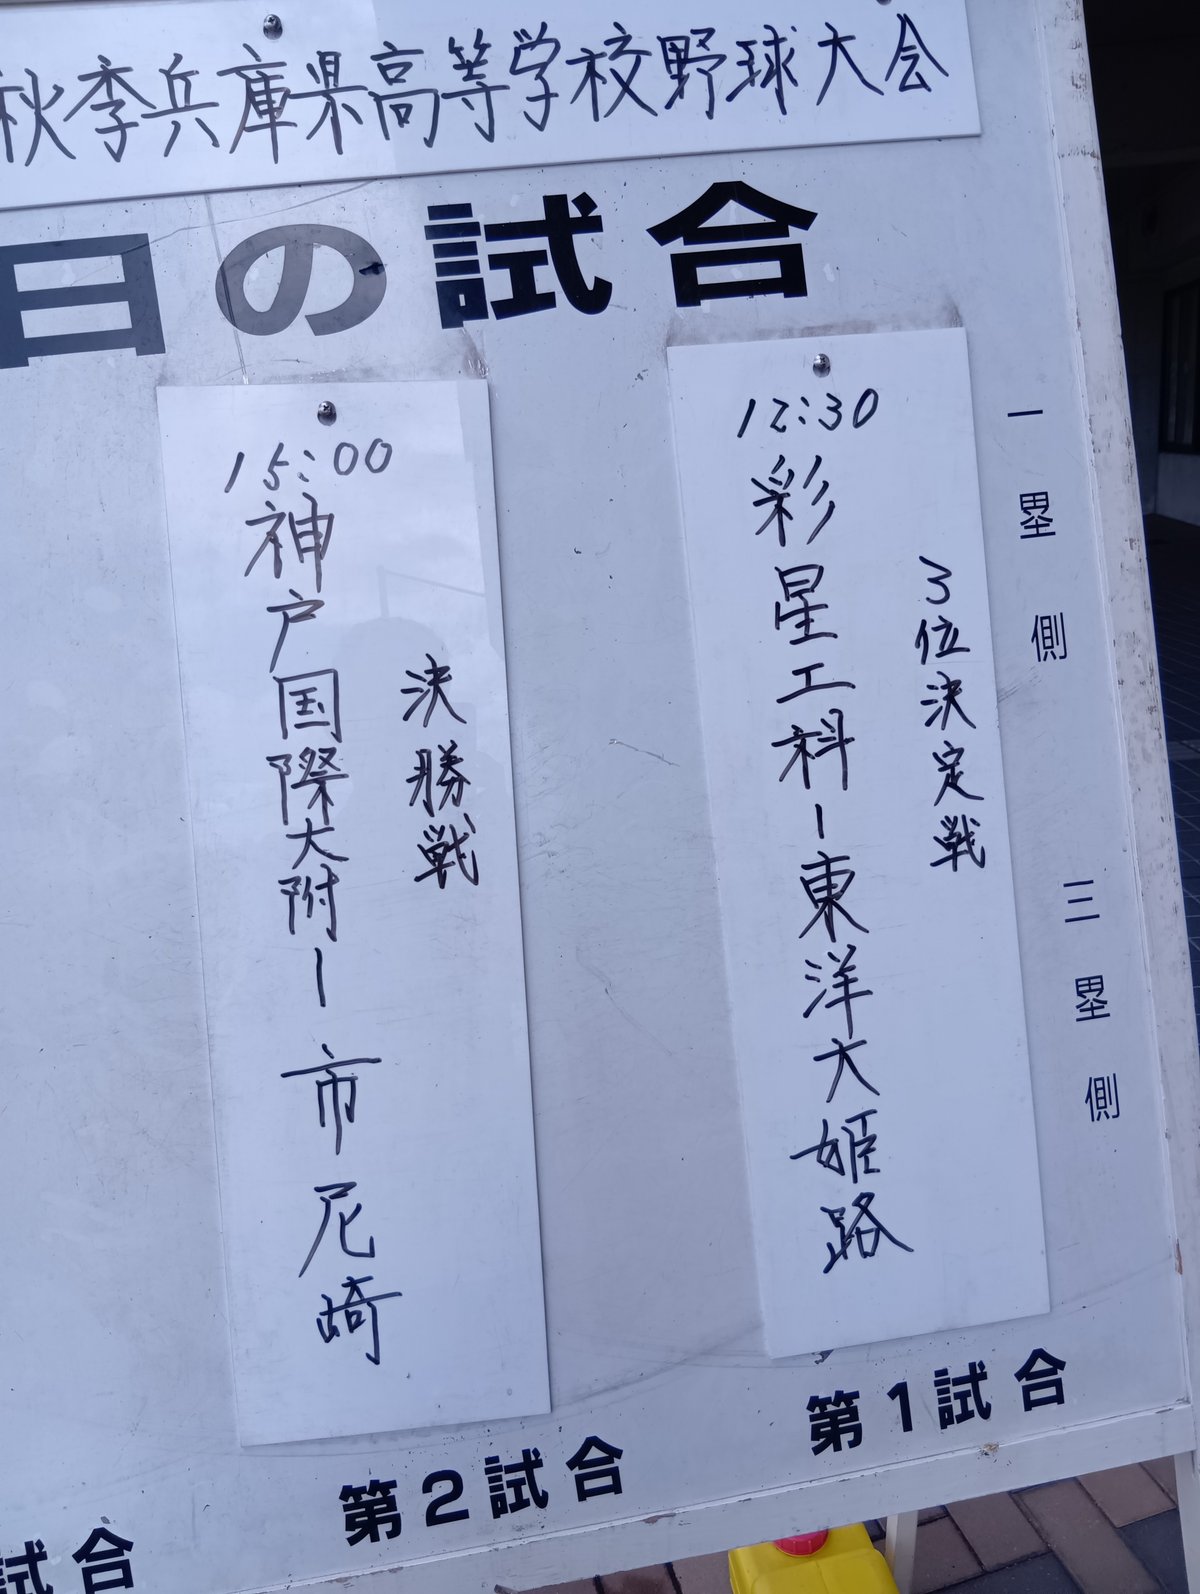 秋季兵庫県高等学校野球大会
日の試合
一塁側
三塁側
12:30
3位決定戦
彩星工科ー東洋大姫路
第1試合
15:00
決勝戦
神戸国際大附ー市尼崎
第2試合
試合